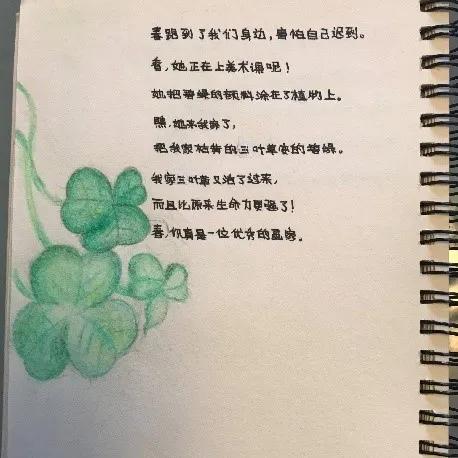 春跑到了我们身边，害怕自己迟到。
看，她正在上美术课呢！
她把碧绿的颜料涂在了植物上。
瞧，她来我家了，
把我家枯黄的三叶草变的碧绿。
我家三叶草又活了过来，
而且比原来生命力更强了！
春，你真是一位优秀的画家。